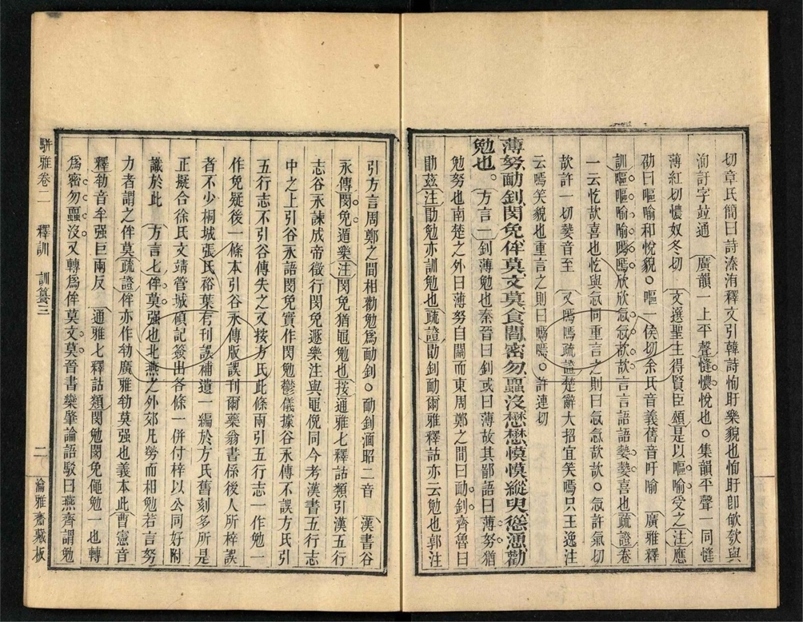 切章氏簡曰詩溱洧釋文引韓詩恂盱樂貌也恂盱卽歆欨與
洵訏字竝通 廣韻一上平聲𢠽憹悅也集韻平聲一同𢠽
薄紅切憹奴冬切 文選聖主得賢臣頌是以嘔喻受之注應
劭曰嘔喻和悅貌嘔一侯切余氏音義舊音吁喻 廣雅釋
訓嘔嘔喻喻嗎嗎欣欣欻欻言言語語喜也疏證卷
一云忔欪喜也忔與忥同重言之則曰忥忥欪欪忥許氣切
欪許一切音至 又嗎嗎疏證楚辭大招宜笑嗎只王逸注
云嗎笑貌也重言之則曰嗎嗎許連切
薄努勔釗閔免侔莫文莫食閻密勿蠠沒懋懋慔慔縱臾慫慂勸
勉也 方言一釗薄勉也秦晉曰釗或曰薄故其鄙語曰薄努猶
勉努也南楚之外曰薄努自關而東周鄭之間曰勔釗齊魯曰
勖茲注勖勉亦訓勉也疏證勔釗勔爾雅釋詁亦云勉也郭注
引方言周鄭之間相勸勉爲勔釗勔釗湎昭二音 漢書谷
永傳閔免遁樂注閔免猶黽勉也按通雅七釋詁類引漢五行
志谷永諫成帝微行閔免遯樂注與黽俛同今考漢書五行志
中之上引谷永語閔免實作閔勉鬱儀據谷永傳不誤方氏引
五行志不引谷傳失之又按方氏此條兩引五行志一作勉一
作免疑後一條本引谷永傳版誤刊爾藥翁書係後人所梓誤
者不少桐城張氏裕葉有刊誤補遺一編於方氏舊刻多所是
正擬合徐氏文靖管城碩記簽出各條一併付梓以公同好附
識於此 方言七侔莫强也北燕之外郊凡勞而相勉若言努
力者謂之侔莫疏證侔亦作劺廣雅劺莫强也義本此曹憲音
釋劺音牟强巨兩反 通雅七釋詁類閔勉閔免僶勉一也轉
爲密勿蠠沒又轉爲侔莫文莫晉書欒肇論語駁曰燕齊謂勉
駢雅卷二 釋訓 訓纂三
二 論雅齋藏板